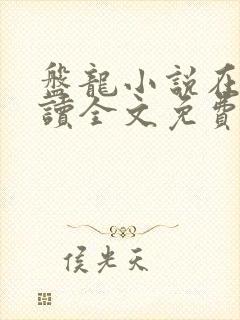 盤龍小說在
讀全文免費
侯光天